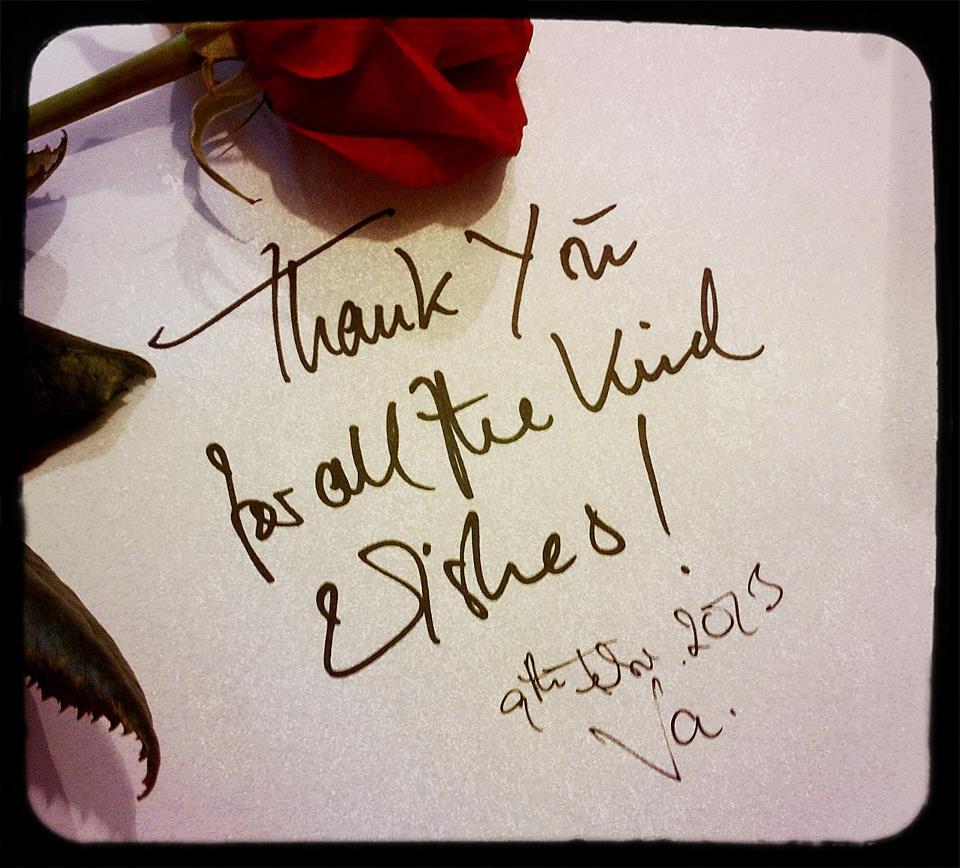 Thank You
for all the Kind
Wishes!
9th Nov. 2013
Va.